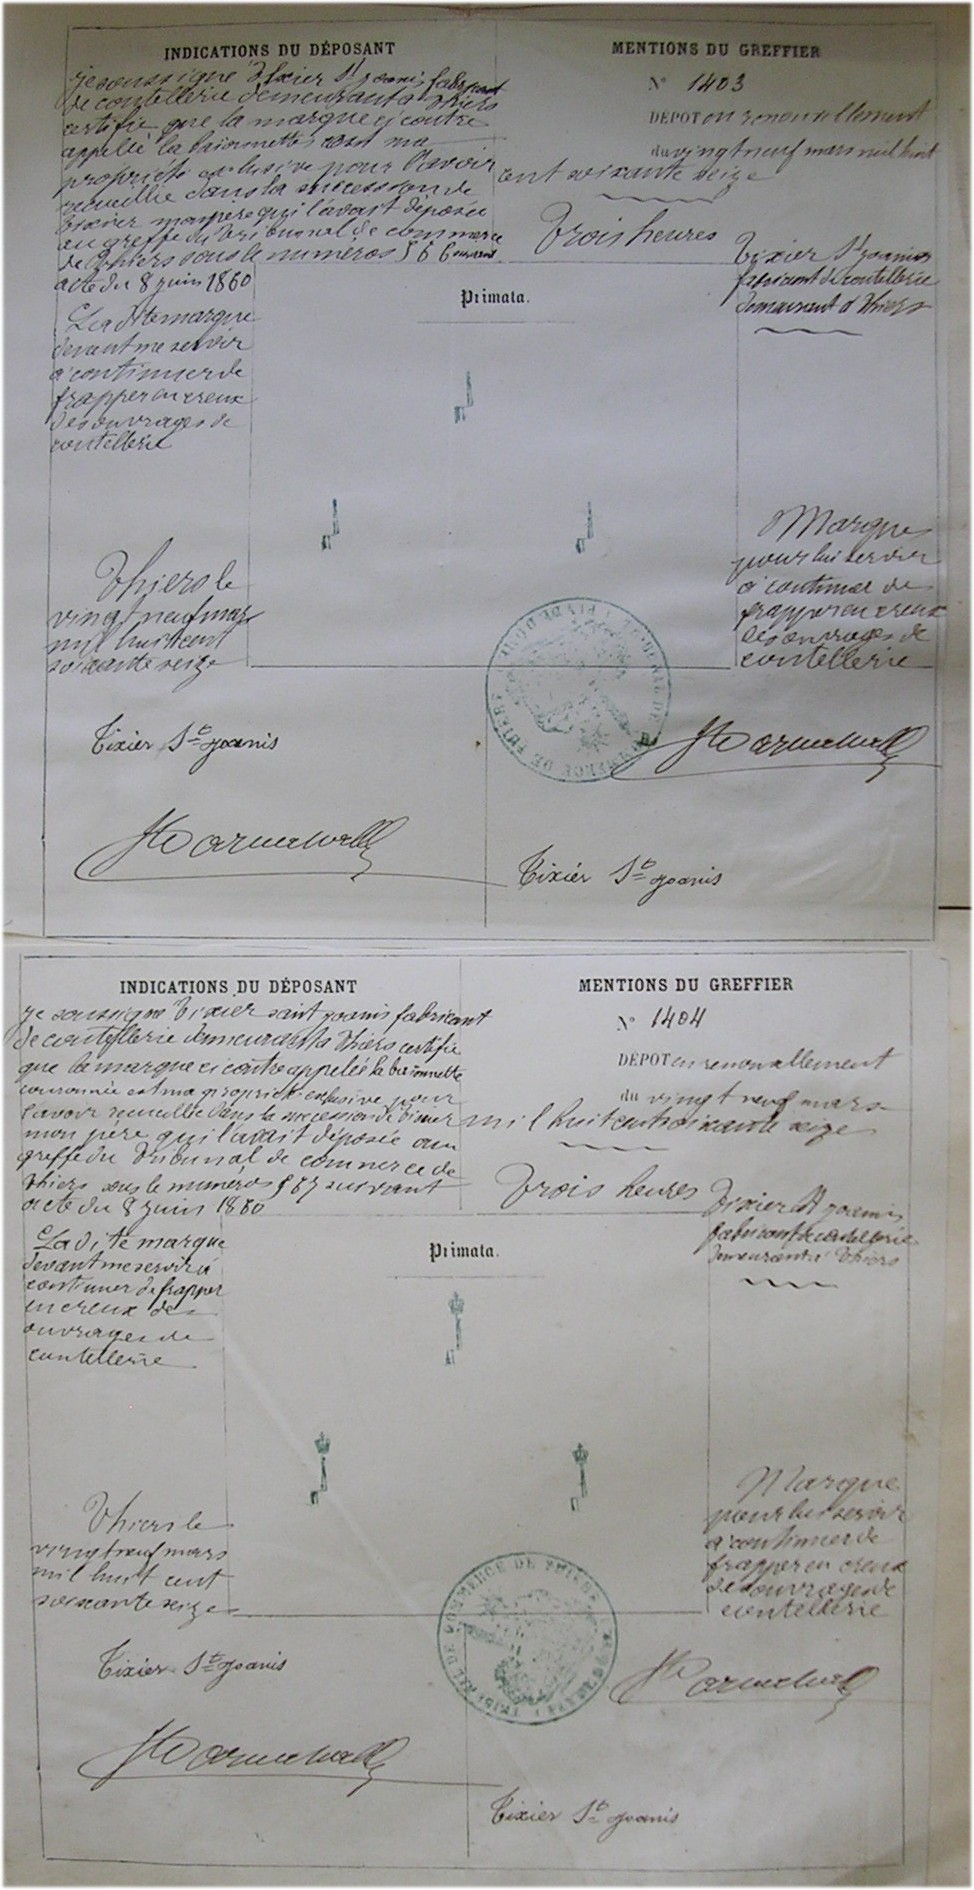 INDICATIONS DU DÉPOSANT
je soussigné Tixier St Joanis fabricant
de coutellerie demeurant a Thiers
certifie que la marque ci contre
appellé la baionnette est ma
propriété exclusive pour l'avoir
recueillie dans la succession de
Tixier mon père qui l'avait déposée
au greffe du Tribunal de commerce
de Thiers sous le numéros 566 suivant
acte du 8 juin 1860
La dite marque
devant me servir
a continuer de
frapper en creux
des ouvrages de
coutellerie
Thiers le
vingt neuf mars
mil huit cent
soixante seize
Tixier St Joanis
MENTIONS DU GREFFIER
N° 1403
DÉPOT en renouvellement
du vingt neuf mars mil huit
cent soixante seize
Trois heures
Tixier St Joanis
fabricant de coutellerie
demeurant a Thiers
Primata.
Marque
pour lui servir
a continuer de
frapper en creux
les ouvrages de
coutellerie
Tixier St Joanis
INDICATIONS DU DÉPOSANT
je soussigne Tixier saint joanis fabricant
de coutellerie demeurant a Thiers certifie
que la marque ci contre appelée la baïonnette
couronnée est ma propriété exclusive pour
l'avoir recueillie dans la succession de Tixier
mon père qui l'avait déposée au
greffe du Tribunal de commerce de
Thiers sous le numéros 567 suivant
acte du 8 juin 1860
La dite marque
devant me servir a
continuer de frapper
en creux des
ouvrages de
coutellerie
Thiers le
vingt neuf mars
mil huit cent
soixante seize
Tixier St Joanis
MENTIONS DU GREFFIER
N° 1404
DÉPOT en renouvellement
du vingt neuf mars
mil huit cent soixante seize
Trois heures
Tixier St Joanis
fabricant de coutellerie
demeurant a Thiers
Primata.
Marque
pour lui servir
a continuer de
frapper en creux
des ouvrages de
coutellerie
TRIBUNAL DE COMMERCE DE THIERS
Tixier St Joanis